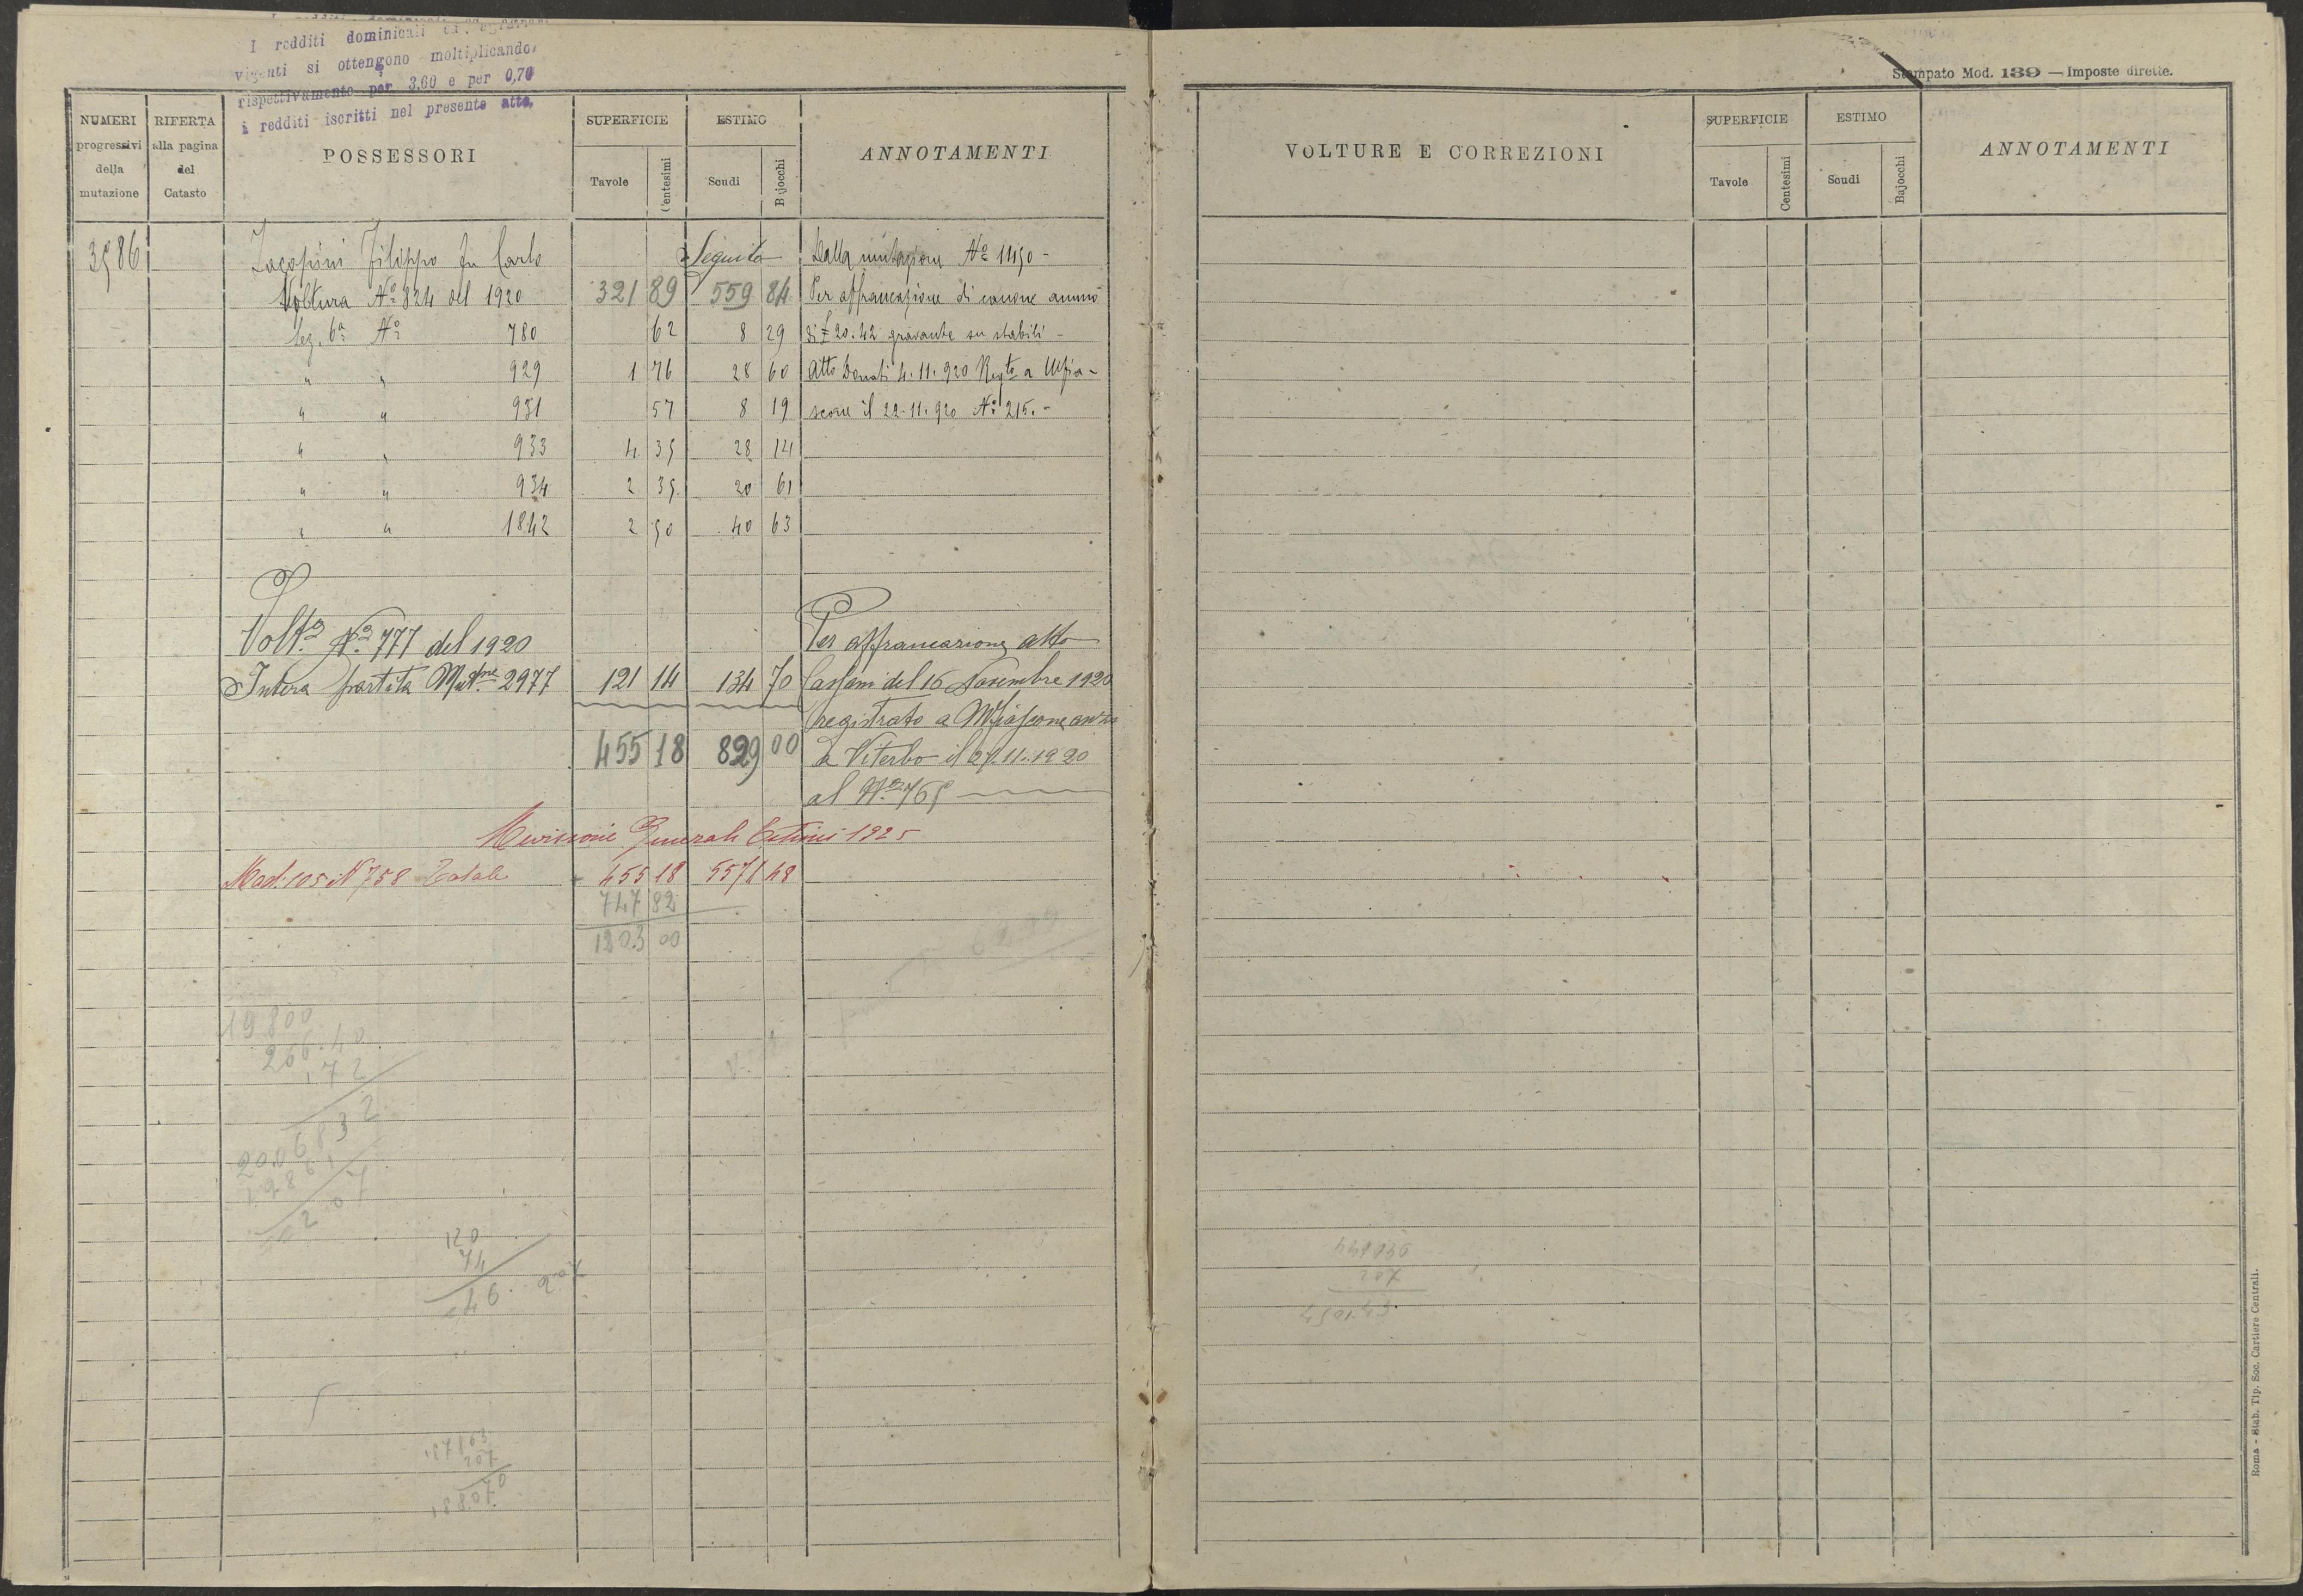 I redditi dominicali ed agrari
vigenti si ottengono moltiplicando
rispettivamente per 3,60 e per 0,70
i redditi iscritti nel presente atto.
NUMERI progressivi della mutazione
RIFERTA alla pagina del Catasto
POSSESSORI
SUPERFICIE
Tavole Centesimi
ESTIMO
Scudi Bajocchi
ANNOTAMENTI
3586 Jacopini Filippo fu Carlo Seguito Dalla mutazione No 1150 -
Voltura No 824 del 1920 321 89 559 84 Per affrancazione di canone annuo
Sez. 6a No 780 62 8 29 di £ 20.42 gravante su stabili -
" " 929 1 76 28 60 Atto Donati 4.11.920 Regto a Mfia-
" " 931 57 8 19 scone il 22.11.920 No 215. -
" " 933 4 35 28 14
" " 934 2 35 20 61
" " 1842 2 50 40 63
Volta No 777 del 1920 Per affrancazione atto
Intera partita Mutne 2977 121 14 134 70 del 16 Novembre 1920
registrato a Mfiascone anzi
455 18 829 00 a Viterbo il 27.11.1920
al No 765
Revisione Generale Estimi 1925
Mod. 105 N 758 Totale 455 18 5571 48
747 82
1203 00
19800
266.40
172
120
74
46
207
18070
Stampato Mod. 139 — Imposte dirette.
VOLTURE E CORREZIONI
SUPERFICIE
Tavole Centesimi
ESTIMO
Scudi Bajocchi
ANNOTAMENTI
Roma - Stab. Tip. Soc. Cartiere Centrali.